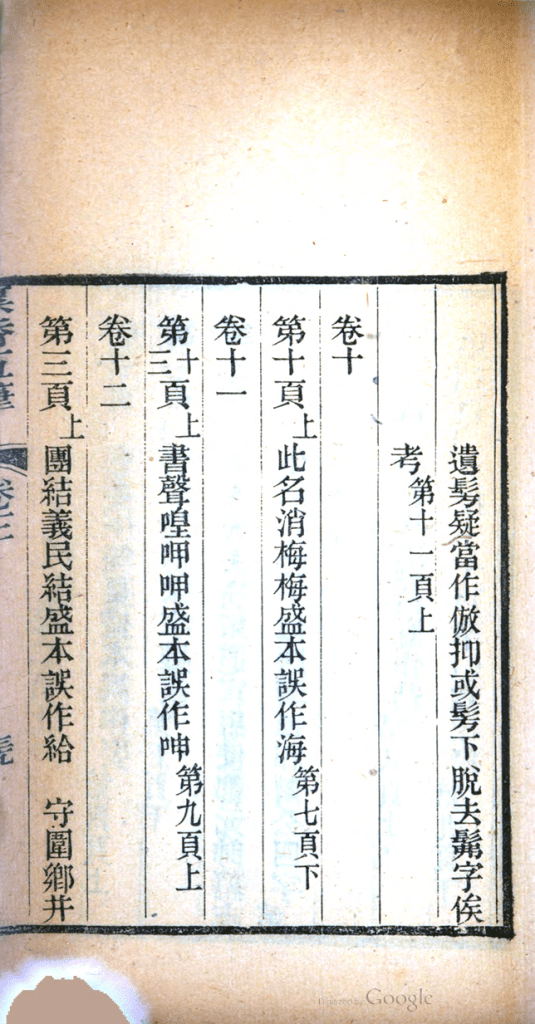 遺髣疑當作倣抑或髣下脫去髴字俟
考第十一頁上
卷十
第十頁上此名消梅梅盛本誤作海第七頁下
卷十一
第十三頁上書聲喤呷呷盛本誤作呻第九頁上
卷十二
第三頁上團結義民結盛本誤作給 守圍鄉井
Google